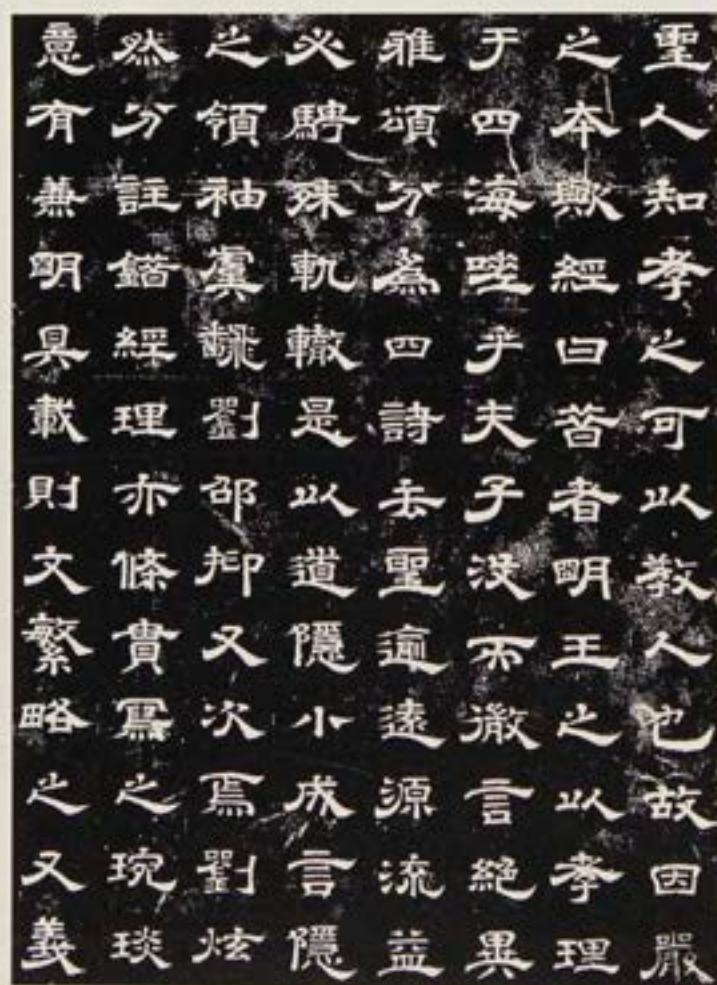 聖人知孝之可以教人也故因嚴
之本歟經曰昔者明王之以孝理
于四海嗟乎夫子没而微言絕異
雅頌分為四詩去聖逾遠源流益
必騁殊軌轍是以道隱小成言隱
之領袖虞翻劉邵抑又次焉劉炫
然分註錯經理亦條貫寫之琬琰
意有兼明具載則文繁略之又義